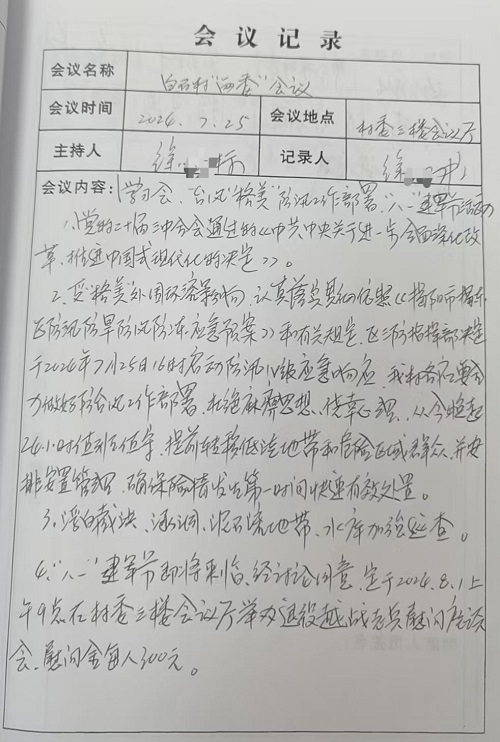 会议记录
会议名称 白石村"两委"会议
会议时间 2024.7.25 会议地点 村委三楼会议厅
主持人 徐 标 记录人 徐
会议内容：学习会、台风"格美"防汛工作部署、"八一"建军节活动
1、党的二十届三中全会通过的《中共中央关于进一步全面深化改
革、推进中国式现代化的决定》。
2、受"格美"外围环流影响，认真落实贯彻依照《揭阳市揭东
区防汛防旱防风防冻应急预案》和有关规定，区三防指挥部决定
于2024年7月25日16时启动防汛Ⅳ级应急响应，我村各宅要全
力做好防台风工作部署，杜绝麻痹思想、侥幸心理，从今晚起
24小时值班值守，提前转移低洼地带和危险区域群众，并安
排安置管理，确保险情发生第一时间快速有效处置。
3、浮白截洪、涵洞、泥石流地带、水库加强巡查。
4、"八一"建军节即将来临，经讨论同意，定于2024.8.1上
午9点在村委三楼会议厅举办退役越战老兵慰问座谈
会，慰问金每人300元。